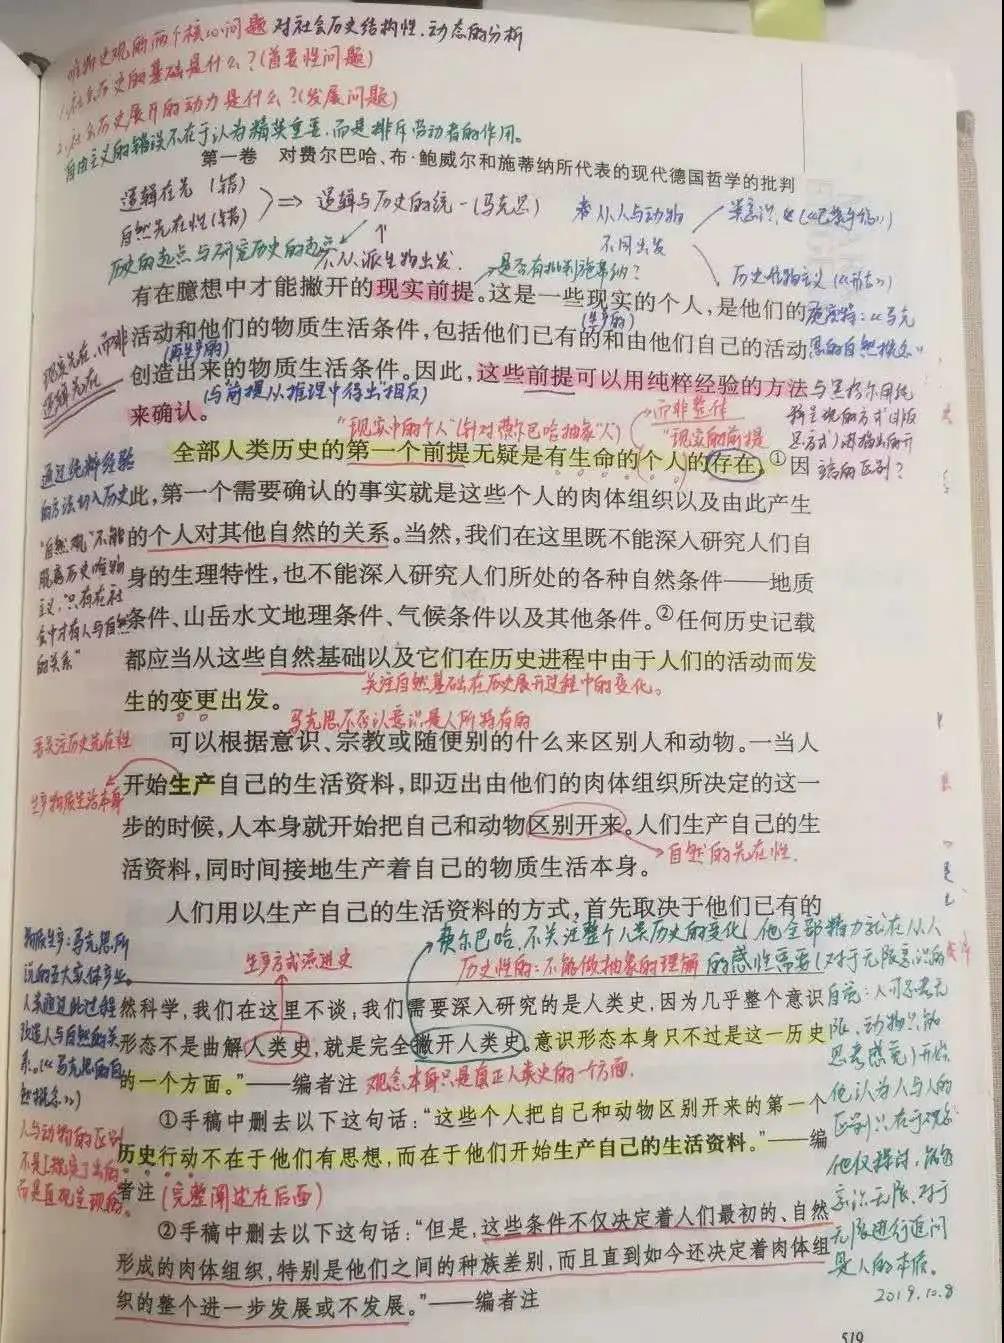 唯物史观的两个核心问题 对社会历史结构性、动态的分析
1.社会历史的基础是什么?(首要性问题)
2.社会历史展开的动力是什么?(发展问题)
自由主义的错误不在于认为精英重要,而是排斥劳动者的作用。
第一卷 对费尔巴哈、布·鲍威尔和施蒂纳所代表的现代德国哲学的批判
逻辑在先(错)
自然先在性(错)
⇒ 逻辑与历史的统一(马克思)
从人与动物
不同出发
类意识
历史唯物主义
历史的起点与研究历史的起点
不从派生物出发.
是否有批判施蒂纳?
有在臆想中才能撇开的现实前提。这是一些现实的个人,是他们的
(生产的)
活动和他们的物质生活条件,包括他们已有的和由他们自己的活动
(再生产的)
创造出来的物质生活条件。因此,这些前提可以用纯粹经验的方法
来确认。
(与前提从推理中得出相反)
现实先在,而非
逻辑先在
施密特:《马克
思的自然概念》
与黑格尔用纯
"现实中的个人"(针对费尔巴哈抽象"人")
而非整体
"现实的前提
全部人类历史的第一个前提无疑是有生命的个人的存在。①因
此,第一个需要确认的事实就是这些个人的肉体组织以及由此产生
的个人对其他自然的关系。当然,我们在这里既不能深入研究人们自
身的生理特性,也不能深入研究人们所处的各种自然条件——地质
条件、山岳水文地理条件、气候条件以及其他条件。②任何历史记载
都应当从这些自然基础以及它们在历史进程中由于人们的活动而发
生的变更出发。
通过纯粹经验
的方法切入历史
"自然观"不能
脱离历史唯物
主义,只有在社
会中才有人与自然
的关系"
关注自然基础在历史展开过程中的变化。
马克思不否认意识是人所特有的
可以根据意识、宗教或随便别的什么来区别人和动物。一当人
开始生产自己的生活资料,即迈出由他们的肉体组织所决定的这一
步的时候,人本身就开始把自己和动物区别开来。人们生产自己的生
活资料,同时间接地生产着自己的物质生活本身。
关注历史先在性
生产物质生活本身
自然的先在性.
人们用以生产自己的生活资料的方式,首先取决于他们已有的
费尔巴哈,不关注整个人类历史的变化,他全部精力就在从人
的感性需要(对于无限意识的
生产方式演进史
历史性的:不能做抽象的理解
然科学,我们在这里不谈;我们需要深入研究的是人类史,因为几乎整个意识
形态不是曲解人类史,就是完全撇开人类史。意识形态本身只不过是这一历史
的一个方面。”——编者注
观念本身只是真正人类史的一方面.
①手稿中删去以下这句话:“这些个人把自己和动物区别开来的第一个
历史行动不在于他们有思想,而在于他们开始生产自己的生活资料。”——编
者注
(完整阐述在后面)
②手稿中删去以下这句话:“但是,这些条件不仅决定着人们最初的、自然
形成的肉体组织,特别是他们之间的种族差别,而且直到如今还决定着肉体组
织的整个进一步发展或不发展。”——编者注
物质生产:马克思所
人类通过此过程
改造人与自然的关
系。(《马克思的自
然概念》)
人与动物的区别
而是直观呈现的。
自觉:人可思考无
限,动物只能
思考感觉)开始.
他认为人与人的
区别只在于观念
他仅探讨,能够
意识无限、对于
无限进行追问
是人的本质。
2019.10.8
519